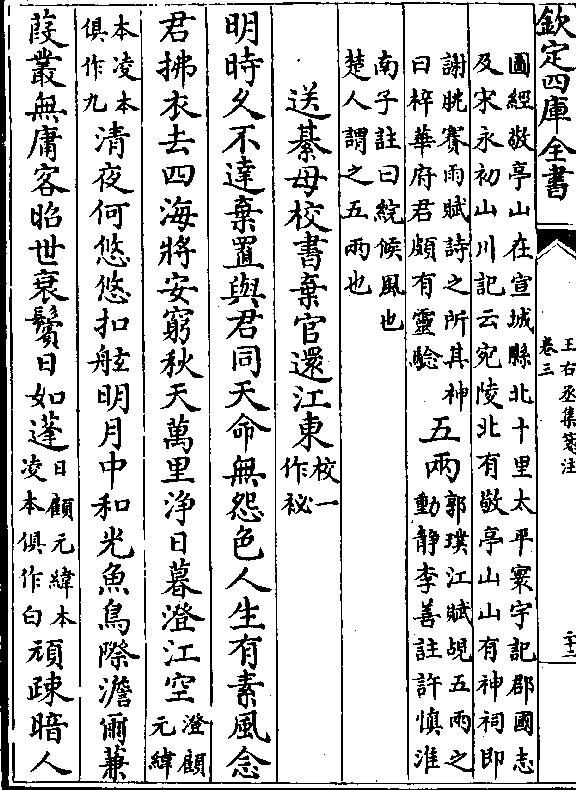 欽定四庫全書
王右丞集箋注
卷三
二十二
圖經敬亭山在宣城縣北十里太平寰宇記郡國志
及宋永初山川記云宛陵北有敬亭山山有神祠即
謝眺賽雨賦詩之所其神
曰梓華府君頗有靈驗
五兩
郭璞江賦覘五兩之
動静李善註許慎淮
南子註曰綄候風也
楚人謂之五兩也
送綦母校書棄官還江東
校一
作祕
明時久不達棄置與君同天命無怨色人生有素風念
君拂衣去四海將安窮秋天萬里浄日暮澄江空
澄顧
元緯
本凌本
俱作九
清夜何悠悠扣舷明月中和光魚鳥際澹爾蒹
葭叢無庸客昭世衰鬢日如蓬
日顧元緯本
凌本俱作白
頑疎暗人